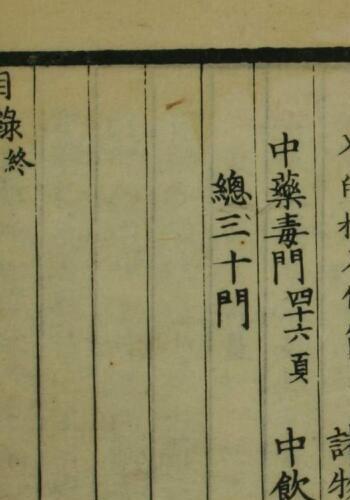 諸物
中藥毒門四十六頁 中飲
總三十門
目錄終